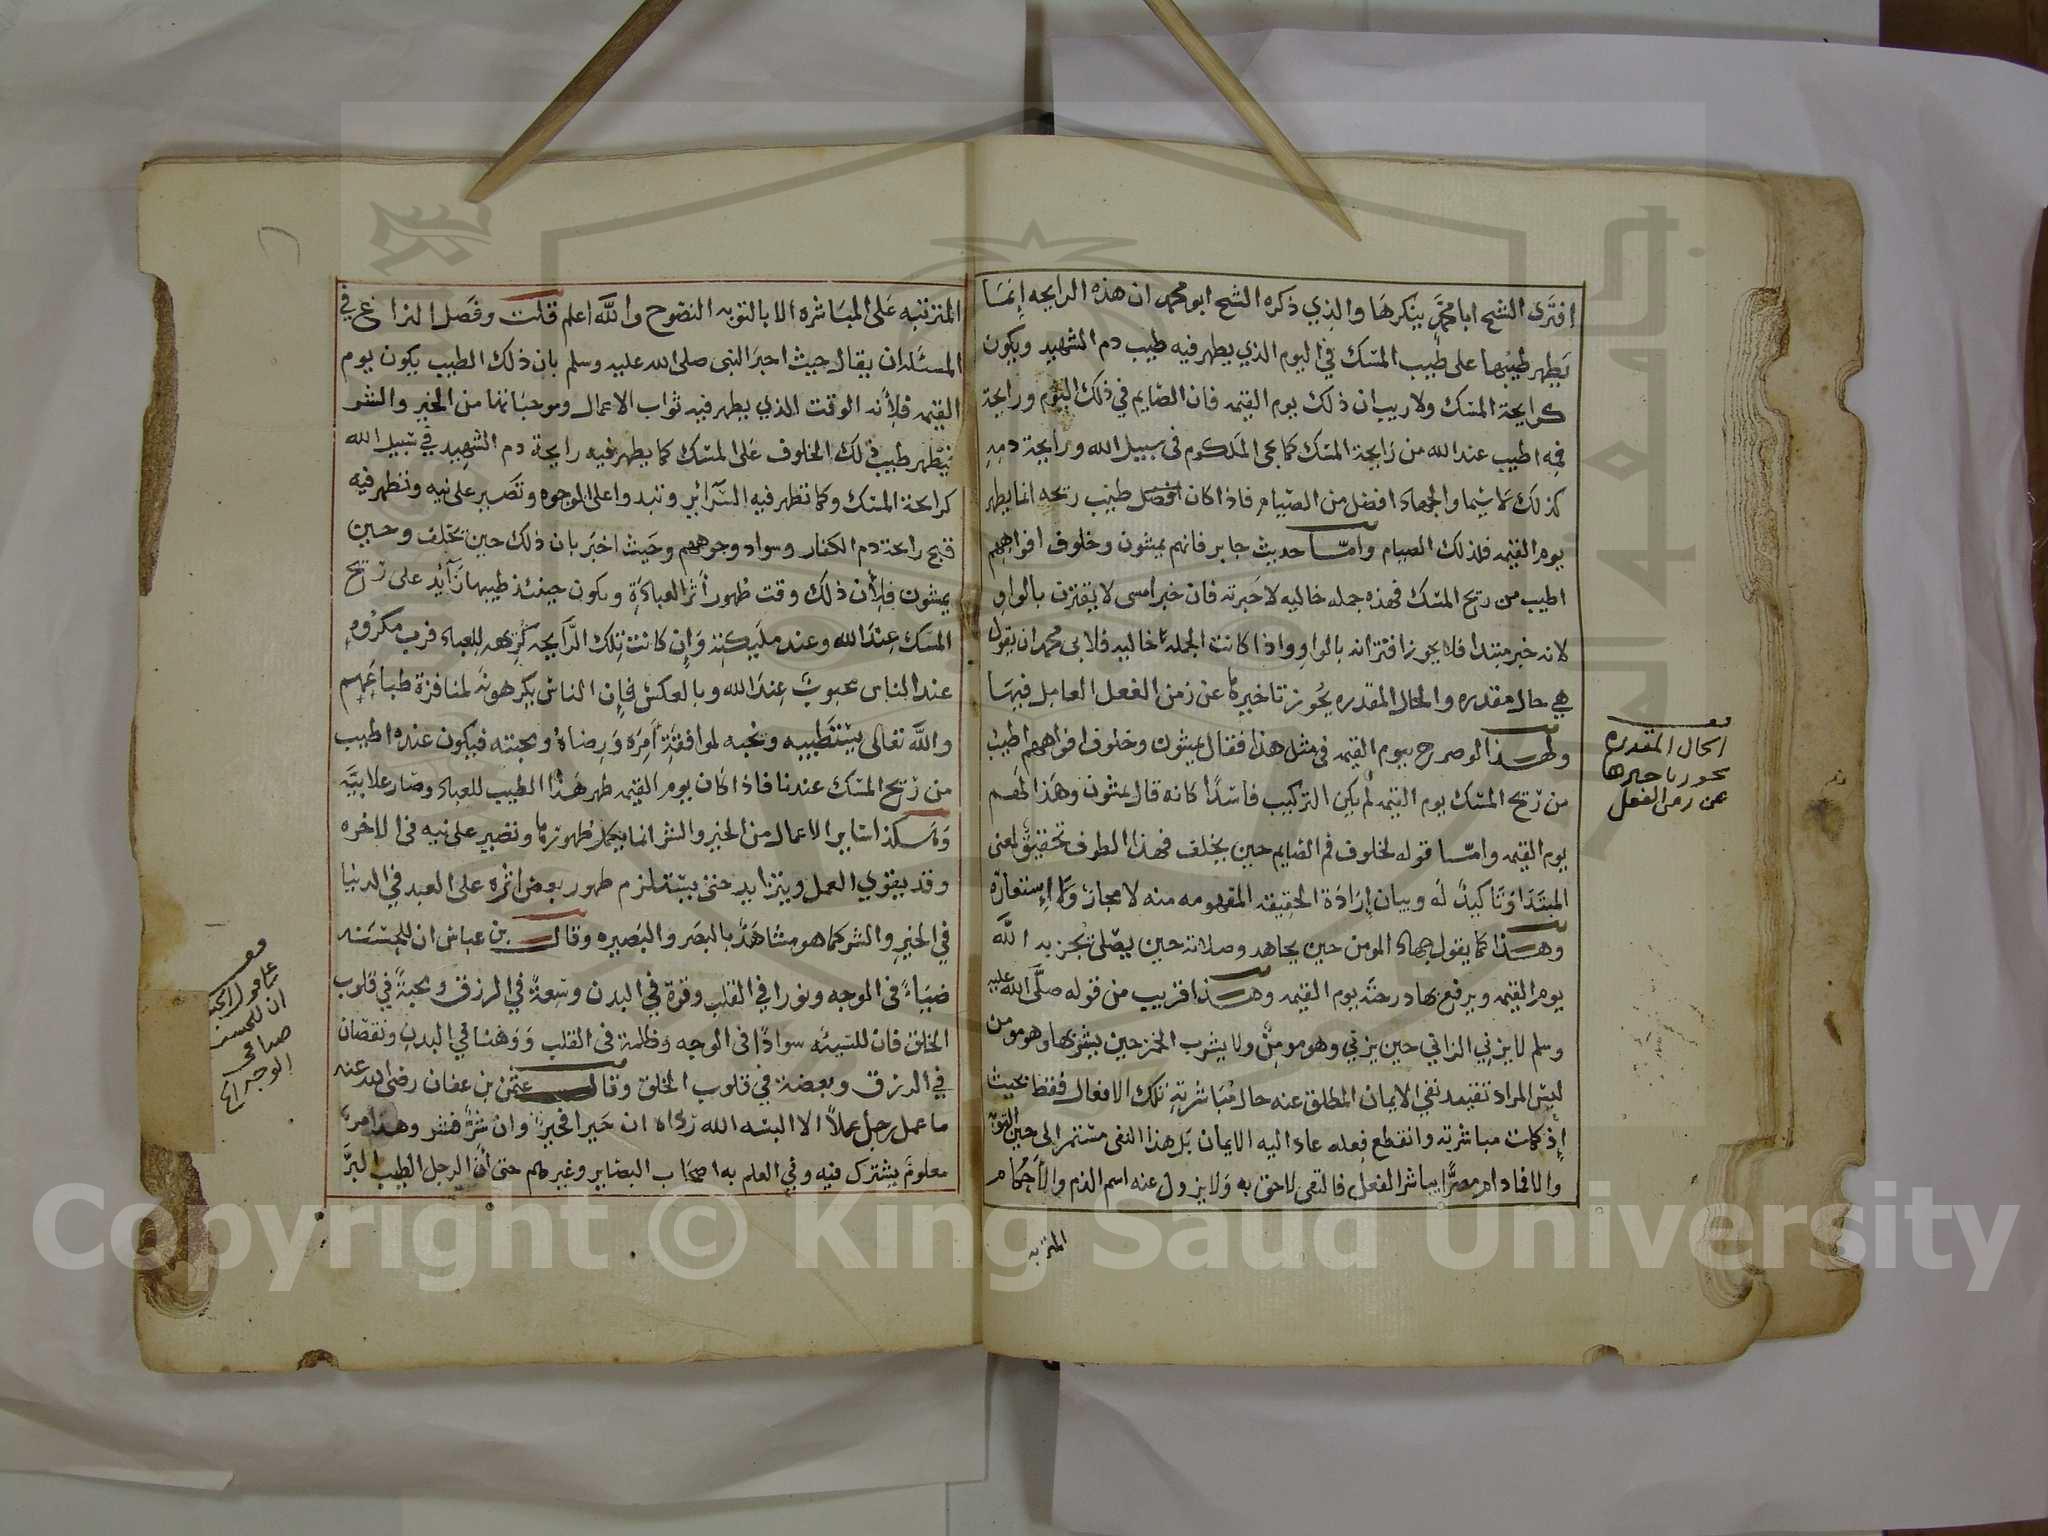 افترى الشيخ ابا محمد ينكرها والذي ذكره الشيخ ابو محمد ان هذه الرايحه إنما
يظهر طيبها على طيب المسك في اليوم الذي يظهر فيه طيب دم الشهيد ويكون
كرايحة المسك ولا ريب ان ذلك يوم القيمه فان الصايم في ذلك اليوم ورايحة
فمه اطيب عند الله من رايحة المسك كما يجى المكلوم في سبيل الله ورايحة دمه
كذلك لا سيما والجهاد افضل من الصيام فاذا كان افضل طيب ريحه انما يظهر
يوم القيمه فلذلك الصيام وامّا حديث جابر فانهم يمشون وخلوف افواههم
اطيب من ريح المسك فهذه جمله حاليه لا خبرته فان خبر امسى لا يقترن بالواو
لانه خبر مبتدا فلا يجوز اقترانه بالواو واذا كانت الجملة حاليه فلابى محمد ان يقول
هي حال مقدره والحال المقدره يجوز تاخيرها عن زمن الفعل العامل فيها
ولهذا لو صرح بيوم القيمه في مثل هذا فقال يمشون وخلوف افواههم اطيب
من ريح المسك يوم القيمه لم يكن التركيب فاسدًا كانه قال يمشون وهذا لهم
يوم القيمه وامّا قوله لخلوف فم الصايم حين يخلف فهذا الظرف تحقيق لمعنى
المبتدا وتاكيد له وبيان إرادة الحقيقه المفهومه منه لا مجازه ولا إستعارته
وهذا كما يقول جهاد المومن حين يجاهد وصلاته حين يصلى يجزيه الله
يوم القيمه ويرفع بها درجته يوم القيمه وهذا قريب من قوله صلى الله عليه
وسلم لا يزني الزاني حين يزني وهو مومن ولا يشرب الخمر حين يشربها وهو مومن
ليس المراد تقييد نفي الايمان المطلق عنه حال مباشرته تلك الافعال فقط بحيث
إذ كملت مباشرته وانقطع فعله عاد اليه الايمان بل هذا النفى مستمر الى حين التوبه
والا فما دام مصرًّا يباشر الفعل فالنفى لاحق به ولا يزول عنه اسم الذم والأحكام
المترتبه
الحال المقدره
يجوز تاخيرها
عن زمن الفعل
المترتبه على المباشره الا بالتوبه النصوح والله اعلم قلت وفصل النزاع في
المسئله ان يقال حيث اخبر النبى صلى الله عليه وسلم بان ذلك الطيب يكون يوم
القيمه فلأنه الوقت الذي يظهر فيه ثواب الاعمال وموجباتها من الخير والشر
فيظهر طيب ذلك الخلوف على المسك كما يظهر فيه رايحة دم الشهيد في سبيل الله
كرايحة المسك وكما تظهر فيه السرائر وتبدوا على الوجوه وتصير علانيه وتظهر فيه
قبح رايحة دم الكفار وسواد وجوههم وحيث اخبر بان ذلك حين يخلف وحين
يمشون فلأن ذلك وقت ظهور أثر العبادة ويكون حينئذ طيبها زآئد على ريح
المسك عند الله وعند مليكته وإن كانت تلك الرايحه كريهه للعباد فرب مكروه
عند الناس محبوب عند الله وبالعكس فإن الناس يكرهونه لمنافرة طباعهم
والله تعالى يستطيبه ويحبه لموافقته أمره ورضاه ومحبته فيكون عنده اطيب
من ريح المسك عندنا فاذا كان يوم القيمه ظهر هذا الطيب للعباد وصار علانيه
وهكذا ساير الاعمال من الخير والشر انما يكمل ظهورها وتصير علانيه في الاخره
وقد يقوي العمل ويتزايد حتى يستلزم ظهور بعض اثره على العبد في الدنيا
في الخير والشر كما هو مشاهد بالبصر والبصيره وقال بن عباس ان للحسنه
ضياءً في الوجه ونورا في القلب وقوة في البدن وسعةً في الرزق ومحبةً في قلوب
الخلق فان للسيئه سوادًا في الوجه وظلمة في القلب ووهنا في البدن ونقصان
في الرزق وبعضة في قلوب الخلق وقال عثمن بن عفان رضي الله عنه
ما عمل رجل عملاً الا البسه الله رداه ان خيرا فخير وان شر فشر وهذا امر
معلوم يشترك فيه وفي العلم به اصحاب البصاير وغيرهم حتى أن الرجل الطيب البرّ
ان للحسنه
ضيا في
الوجه الخ
Copyright © King Saud University